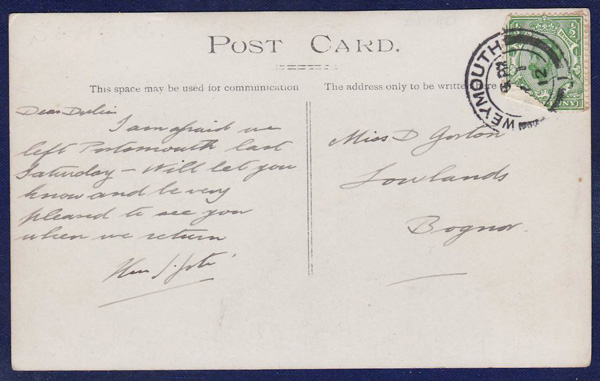 POST CARD.
This space may be used for communication
The address only to be written here
Dear
I am afraid we
left Portsmouth last
Saturday – Will let you
know and be very
pleased to see you
when we return
Miss D Gorton
Lowlands
Bognor.
WEYMOUTH
12